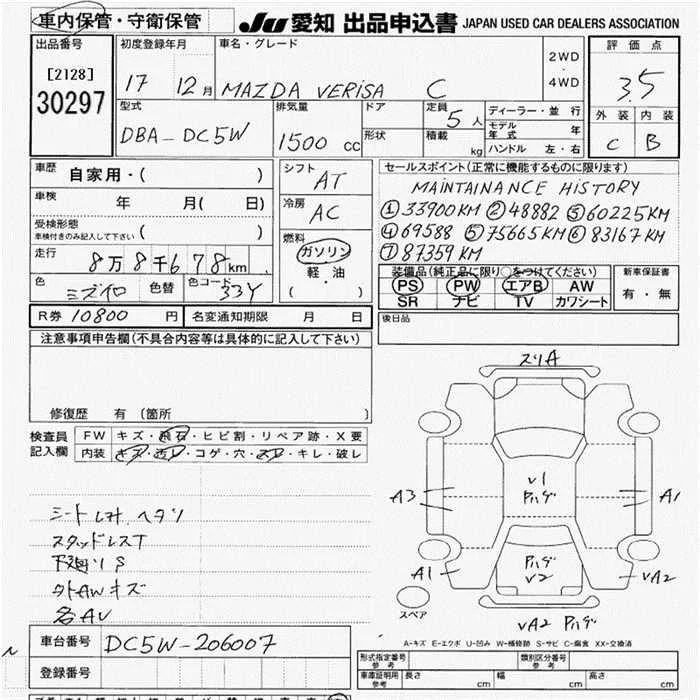 車内保管・守衛保管
JU 愛知 出品申込書 JAPAN USED CAR DEALERS ASSOCIATION
出品番号
[2128]
30297
初度登録年月
17 12月
車名・グレード
MAZDA VERISA C
2WD
・
4WD
評価点
3.5
外装 内装
C B
型式
DBA-DC5W
排気量
1500 cc
ドア
形状
定員
5人
積載
kg
ディーラー・並行
モデル年式 年
ハンドル 左・右
車歴
自家用・( )
車検
年 月( 日)
受検形態
車検付きのみ記入して下さい ( )
走行
8万8千678km
色
ミズイロ
色替
色コード
33Y
シフト
AT
冷房
AC
燃料
ガソリン
軽油
( ・ )
セールスポイント(正常に機能するものに限ります)
MAINTAINANCE HISTORY
① 33900KM ② 48882 ③ 60225KM
④ 69588 ⑤ 75665KM ⑥ 83167KM
⑦ 87359KM
装備品(純正品に限り○をつけてください)
PS PW エアB AW
SR ナビ TV カワシート
新車保証書
有・無
R券 10800 円
名変通知期限 月 日
後日品
注意事項申告欄(不具合内容等は具体的に記入して下さい)
修復歴 有 (箇所 )
検査員
記入欄
FW キズ・飛石・ヒビ割・リペア跡・X要
内装 キズ・汚レ・コゲ・穴・スレ・キレ・破レ
シートレカ、ヘタリ
スタッドレスT
下廻リS
外AWキズ
各AU
スリA
A3
A1
A1
V1
ﾀﾊﾞｸﾞ
V2
VA2
VA2
スペア
A-キズ E-エクボ U-凹み W-補修跡 S-サビ C-腐食 XX-交換済
車台番号 DC5W-206007
登録番号
形式指定番号
参考
類別区分番号
参考
車庫証明用
参考
長さ cm
幅 cm
高さ cm